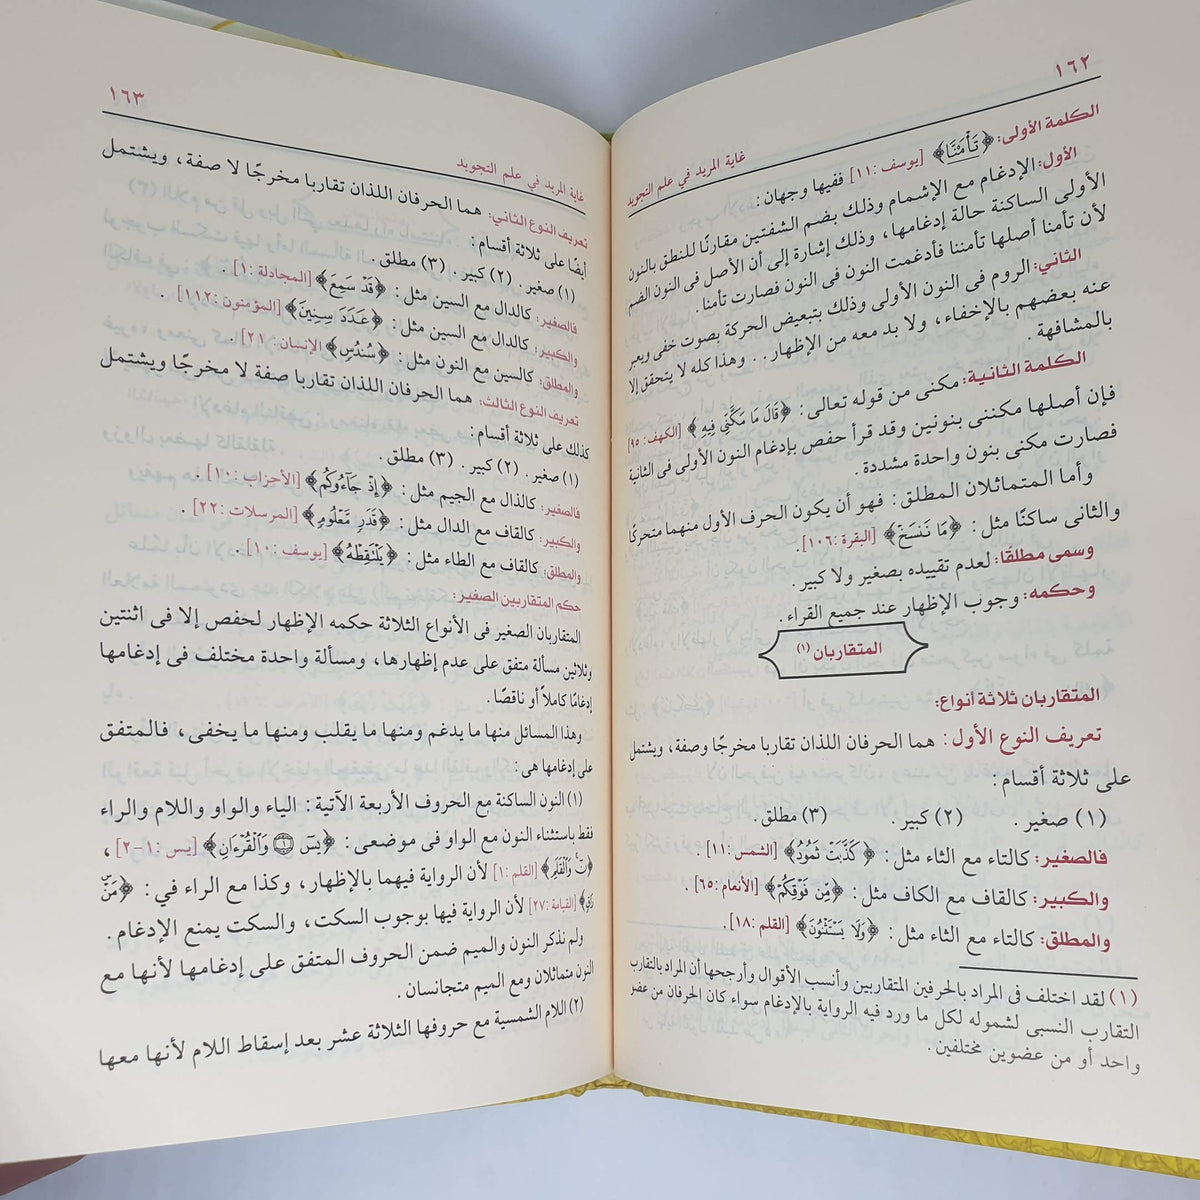 ١٦٢
غاية المريد في علم التجويد
الكلمة الأولى: ﴿تَأْمَنَّا﴾ [يوسف: ١١] ففيها وجهان:
الأول: الإدغام مع الإشمام وذلك بضم الشفتين مقارنًا للنطق بالنون
الأولى الساكنة حالة إدغامها، وذلك إشارة إلى أن الأصل فى النون الضم
لأن تأمنا أصلها تأمننا فأدغمت النون فى النون فصارت تأمنا.
الثاني: الروم فى النون الأولى وذلك بتبعيض الحركة بصوت خفى ويعبر
عنه بعضهم بالإخفاء، ولا بد معه من الإظهار.. وهذا كله لا يتحقق إلا
بالمشافهة.
الكلمة الثانية: مكنى من قوله تعالى: ﴿قَالَ مَا مَكَّنِّى فِيهِ﴾ [الكهف: ٩٥]
فإن أصلها مكننى بنونين وقد قرأ حفص بإدغام النون الأولى فى الثانية
فصارت مكنى بنون واحدة مشددة.
وأما المتماثلان المطلق: فهو أن يكون الحرف الأول منهما متحركًا
والثانى ساكنًا مثل: ﴿مَا نَنسَخْ﴾ [البقرة: ١٠٦].
وسمى مطلقًا: لعدم تقييده بصغير ولا كبير.
وحكمه: وجوب الإظهار عند جميع القراء.
المتقاربان (١)
المتقاربان ثلاثة أنواع:
تعريف النوع الأول: هما الحرفان اللذان تقاربا مخرجًا وصفة، ويشتمل
على ثلاثة أقسام:
(١) صغير. (٢) كبير. (٣) مطلق.
فالصغير: كالتاء مع الثاء مثل: ﴿كَذَّبَتْ ثَمُودُ﴾ [الشمس: ١١].
والكبير: كالقاف مع الكاف مثل: ﴿مِّن فَوْقِكُمْ﴾ [الأنعام: ٦٥].
والمطلق: كالتاء مع الثاء مثل: ﴿وَلَا يَسْتَثْنُونَ﴾ [القلم: ١٨].
(١) لقد اختلف فى المراد بالحرفين المتقاربين وأنسب الأقوال وأرجحها أن المراد بالتقارب
التقارب النسبى لشموله لكل ما ورد فيه الرواية بالإدغام سواء كان الحرفان من عضو
واحد أو من عضوين مختلفين.
١٦٣
غاية المريد في علم التجويد
تعريف النوع الثاني: هما الحرفان اللذان تقاربا مخرجًا لا صفة، ويشتمل
أيضًا على ثلاثة أقسام:
(١) صغير. (٢) كبير. (٣) مطلق.
فالصغير: كالدال مع السين مثل: ﴿قَدْ سَمِعَ﴾ [المجادلة: ١].
والكبير: كالدال مع السين مثل: ﴿عَدَدَ سِنِينَ﴾ [المؤمنون: ١١٢].
والمطلق: كالسين مع النون مثل: ﴿سُندُسٍ﴾ الإنسان: ٢١].
تعريف النوع الثالث: هما الحرفان اللذان تقاربا صفة لا مخرجًا ويشتمل
كذلك على ثلاثة أقسام:
(١) صغير. (٢) كبير. (٣) مطلق.
فالصغير: كالذال مع الجيم مثل: ﴿إِذْ جَآءُوكُم﴾ [الأحزاب: ١٠].
والكبير: كالقاف مع الدال مثل: ﴿قَدَرٍ مَّعْلُومٍ﴾ [المرسلات: ٢٢].
والمطلق: كالقاف مع الطاء مثل: ﴿يَلْتَقِطْهُ﴾ [يوسف: ١٠].
حكم المتقاربين الصغير:
المتقاربان الصغير فى الأنواع الثلاثة حكمه الإظهار لحفص إلا فى اثنتين
وثلاثين مسألة متفق على عدم إظهارها، ومسألة واحدة مختلف فى إدغامها
إدغامًا كاملاً أو ناقصًا.
وهذا المسائل منها ما يدغم ومنها ما يقلب ومنها ما يخفى، فالمتفق
على إدغامها هى:
(١) النون الساكنة مع الحروف الأربعة الآتية: الياء والواو واللام والراء
فقط باستثناء النون مع الواو فى موضعى: ﴿يسٓ ١ وَٱلْقُرْءَانِ﴾ [يس: ١-٢]،
﴿نٓ وَٱلْقَلَمِ﴾ [القلم: ١] لأن الرواية فيهما بالإظهار، وكذا مع الراء في: ﴿مَنْۜ
رَاقٍ﴾ [القيامة: ٢٧] لأن الرواية فيها بوجوب السكت، والسكت يمنع الإدغام.
ولم نذكر النون والميم ضمن الحروف المتفق على إدغامها لأنها مع
النون متماثلان ومع الميم متجانسان.
(٢) اللام الشمسية مع حروفها الثلاثة عشر بعد إسقاط اللام لأنها معها